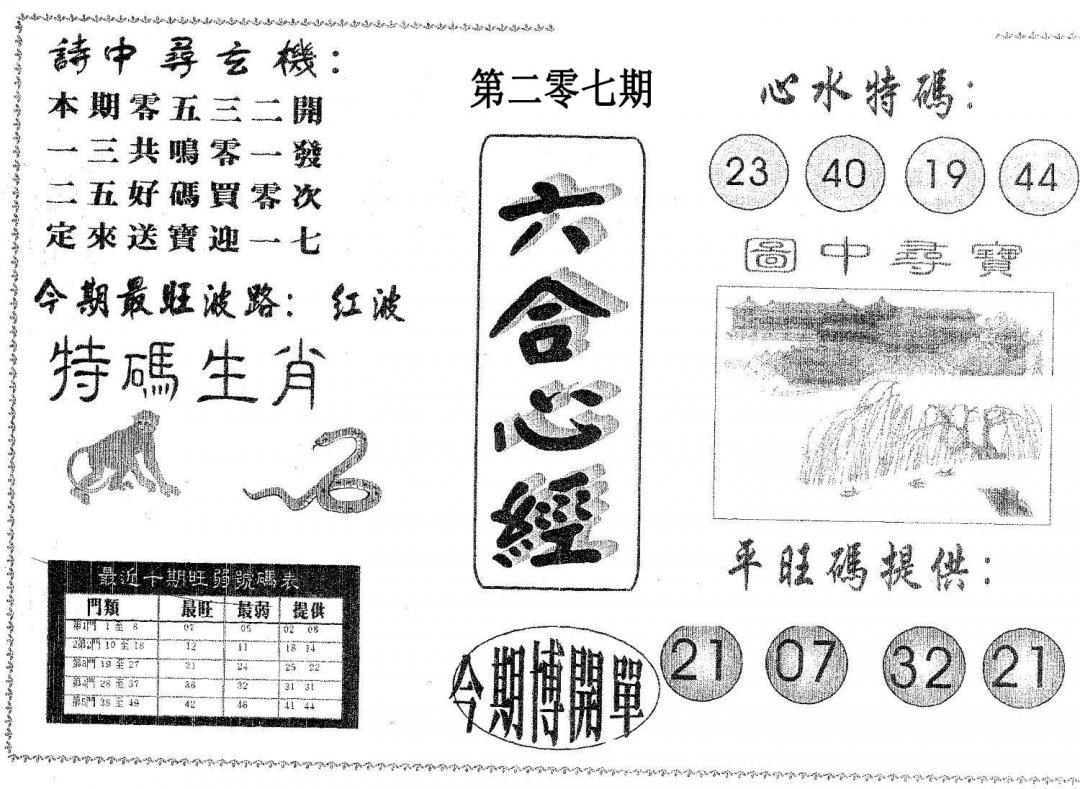 詩中尋玄機：
本期零五三二開
一三共鳴零一發
二五好碼買零次
定來送寶迎一七
今期最旺波路： 红波
特碼生肖
最近十期旺弱號碼表
門類 最旺 最弱 提供
第1門 1 至 8 07 05 02 08
2第2門 10 至 18 12 11 18 14
第3門 19 至 27 21 24 25 22
第4門 28 至 37 36 32 31 31
第5門 38 至 49 42 46 41 44
第二零七期
六合心經
今期博開單
心水特碼：
23 40 19 44
圖中尋寶
平旺碼提供：
21 07 32 21